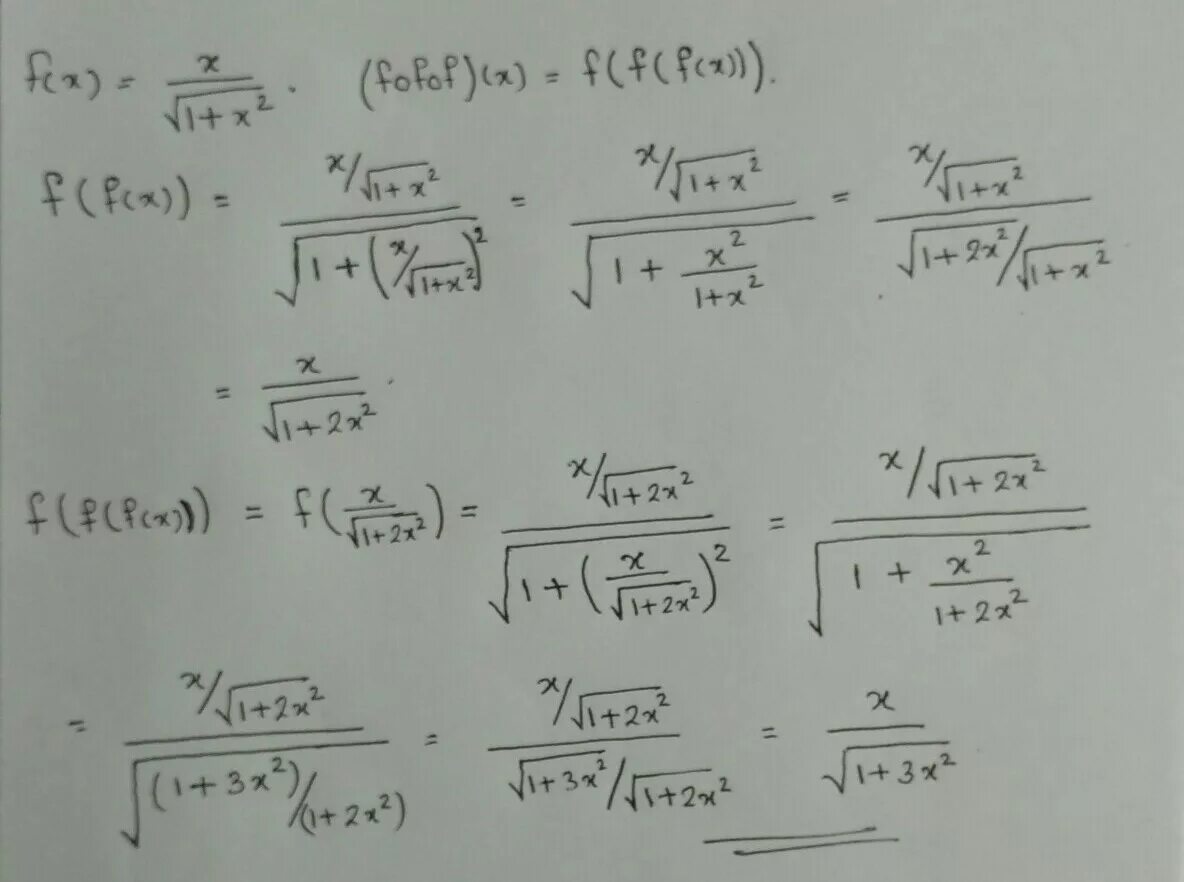 f(x) = x/√(1+x²) . (fofof)(x) = f(f(f(x))).
f(f(x)) = (x/√(1+x²))/√(1+(x/√(1+x²))²) = (x/√(1+x²))/√(1 + x²/(1+x²)) = (x/√(1+x²))/(√(1+2x²)/√(1+x²))
= x/√(1+2x²) .
f(f(f(x))) = f(x/√(1+2x²)) = (x/√(1+2x²))/√(1+(x/√(1+2x²))²) = (x/√(1+2x²))/√(1 + x²/(1+2x²))
= (x/√(1+2x²))/√((1+3x²)/(1+2x²)) = (x/√(1+2x²))/(√(1+3x²)/√(1+2x²)) = x/√(1+3x²)